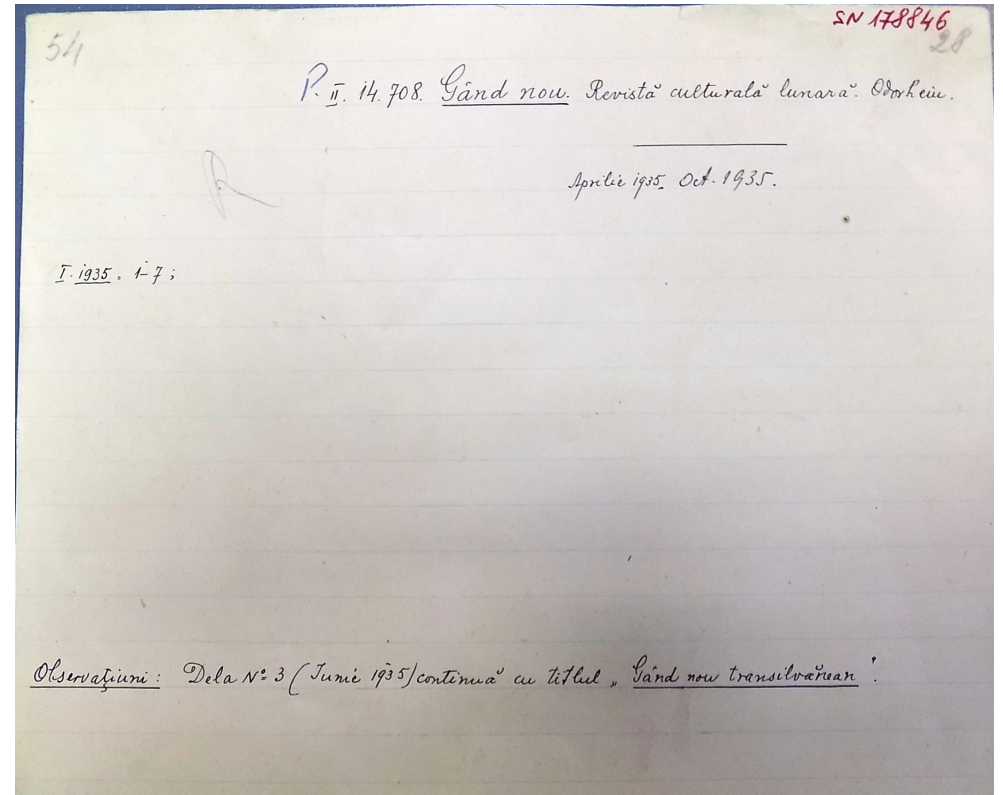 SN 178846
54
28
P. II. 14.708. Gând nou. Revistă culturală lunară. Odorheiu.
Aprilie 1935. Oct. 1935.
R
I. 1935. 1-7;
Observaţiuni: Dela Nº 3 (Iunie 1935) continuă cu titlul „Gând nou transilvănean".